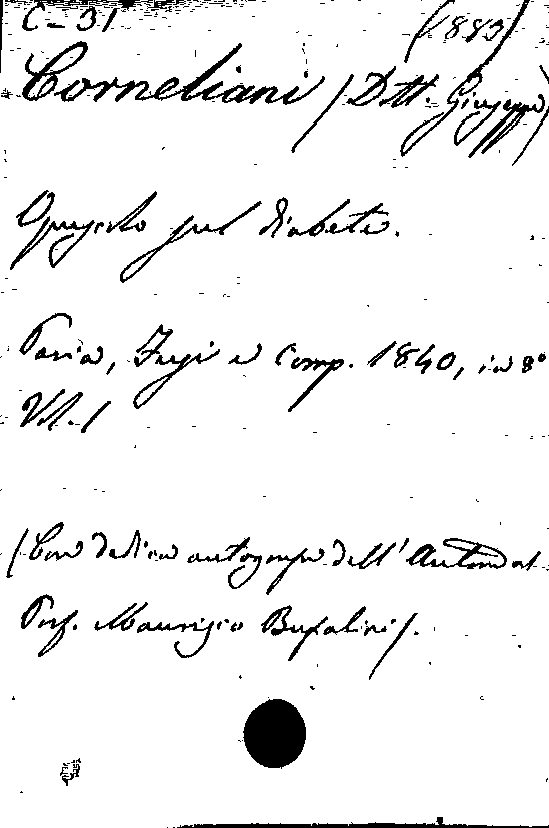 C-31 (883)
Corneliani (Dott. Giuseppe)
Opuscolo sul diabete.
Pavia, Fusi e Comp. 1840, in 8°
Vol. 1
(Con dedica autografa dell'Autore al
Prof. Maurizio Bufalini).